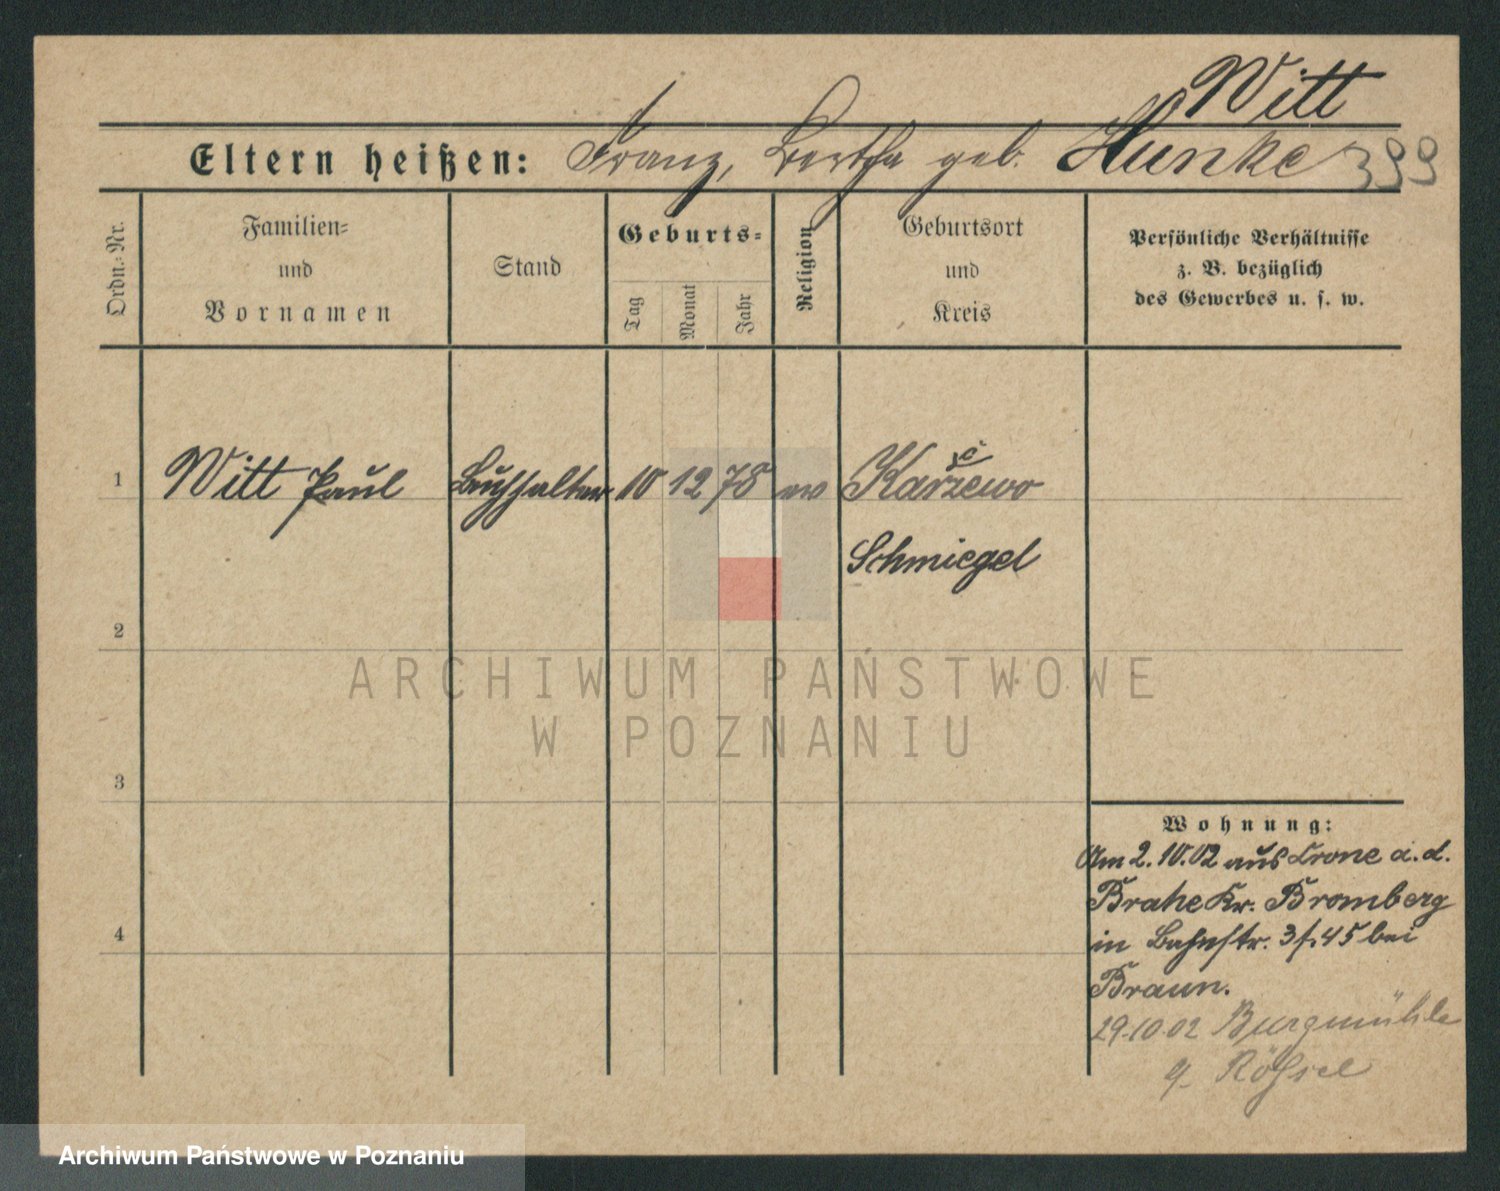 Witt
Eltern heißen: Franz, Bertha geb. Hunke 399
Ordn.-Nr.
Familien-
und
Vornamen
Stand
Geburts-
Tag
Monat
Jahr
Religion
Geburtsort
und
Kreis
Persönliche Verhältnisse
z. B. bezüglich
des Gewerbes u. s. w.
1 Witt Paul Buchhalter 10 12 78 ev
Schmiegel
2
ARCHIWUM PAŃSTWOWE
W POZNANIU
3
Wohnung:
Am 2.10.02 aus Crone a. d.
Brahe Kr. Bromberg
in Bahnstr. 3 f. 45 bei
Braun.
4
29.10.02 Burgmühle
Rößel
Archiwum Państwowe w Poznaniu